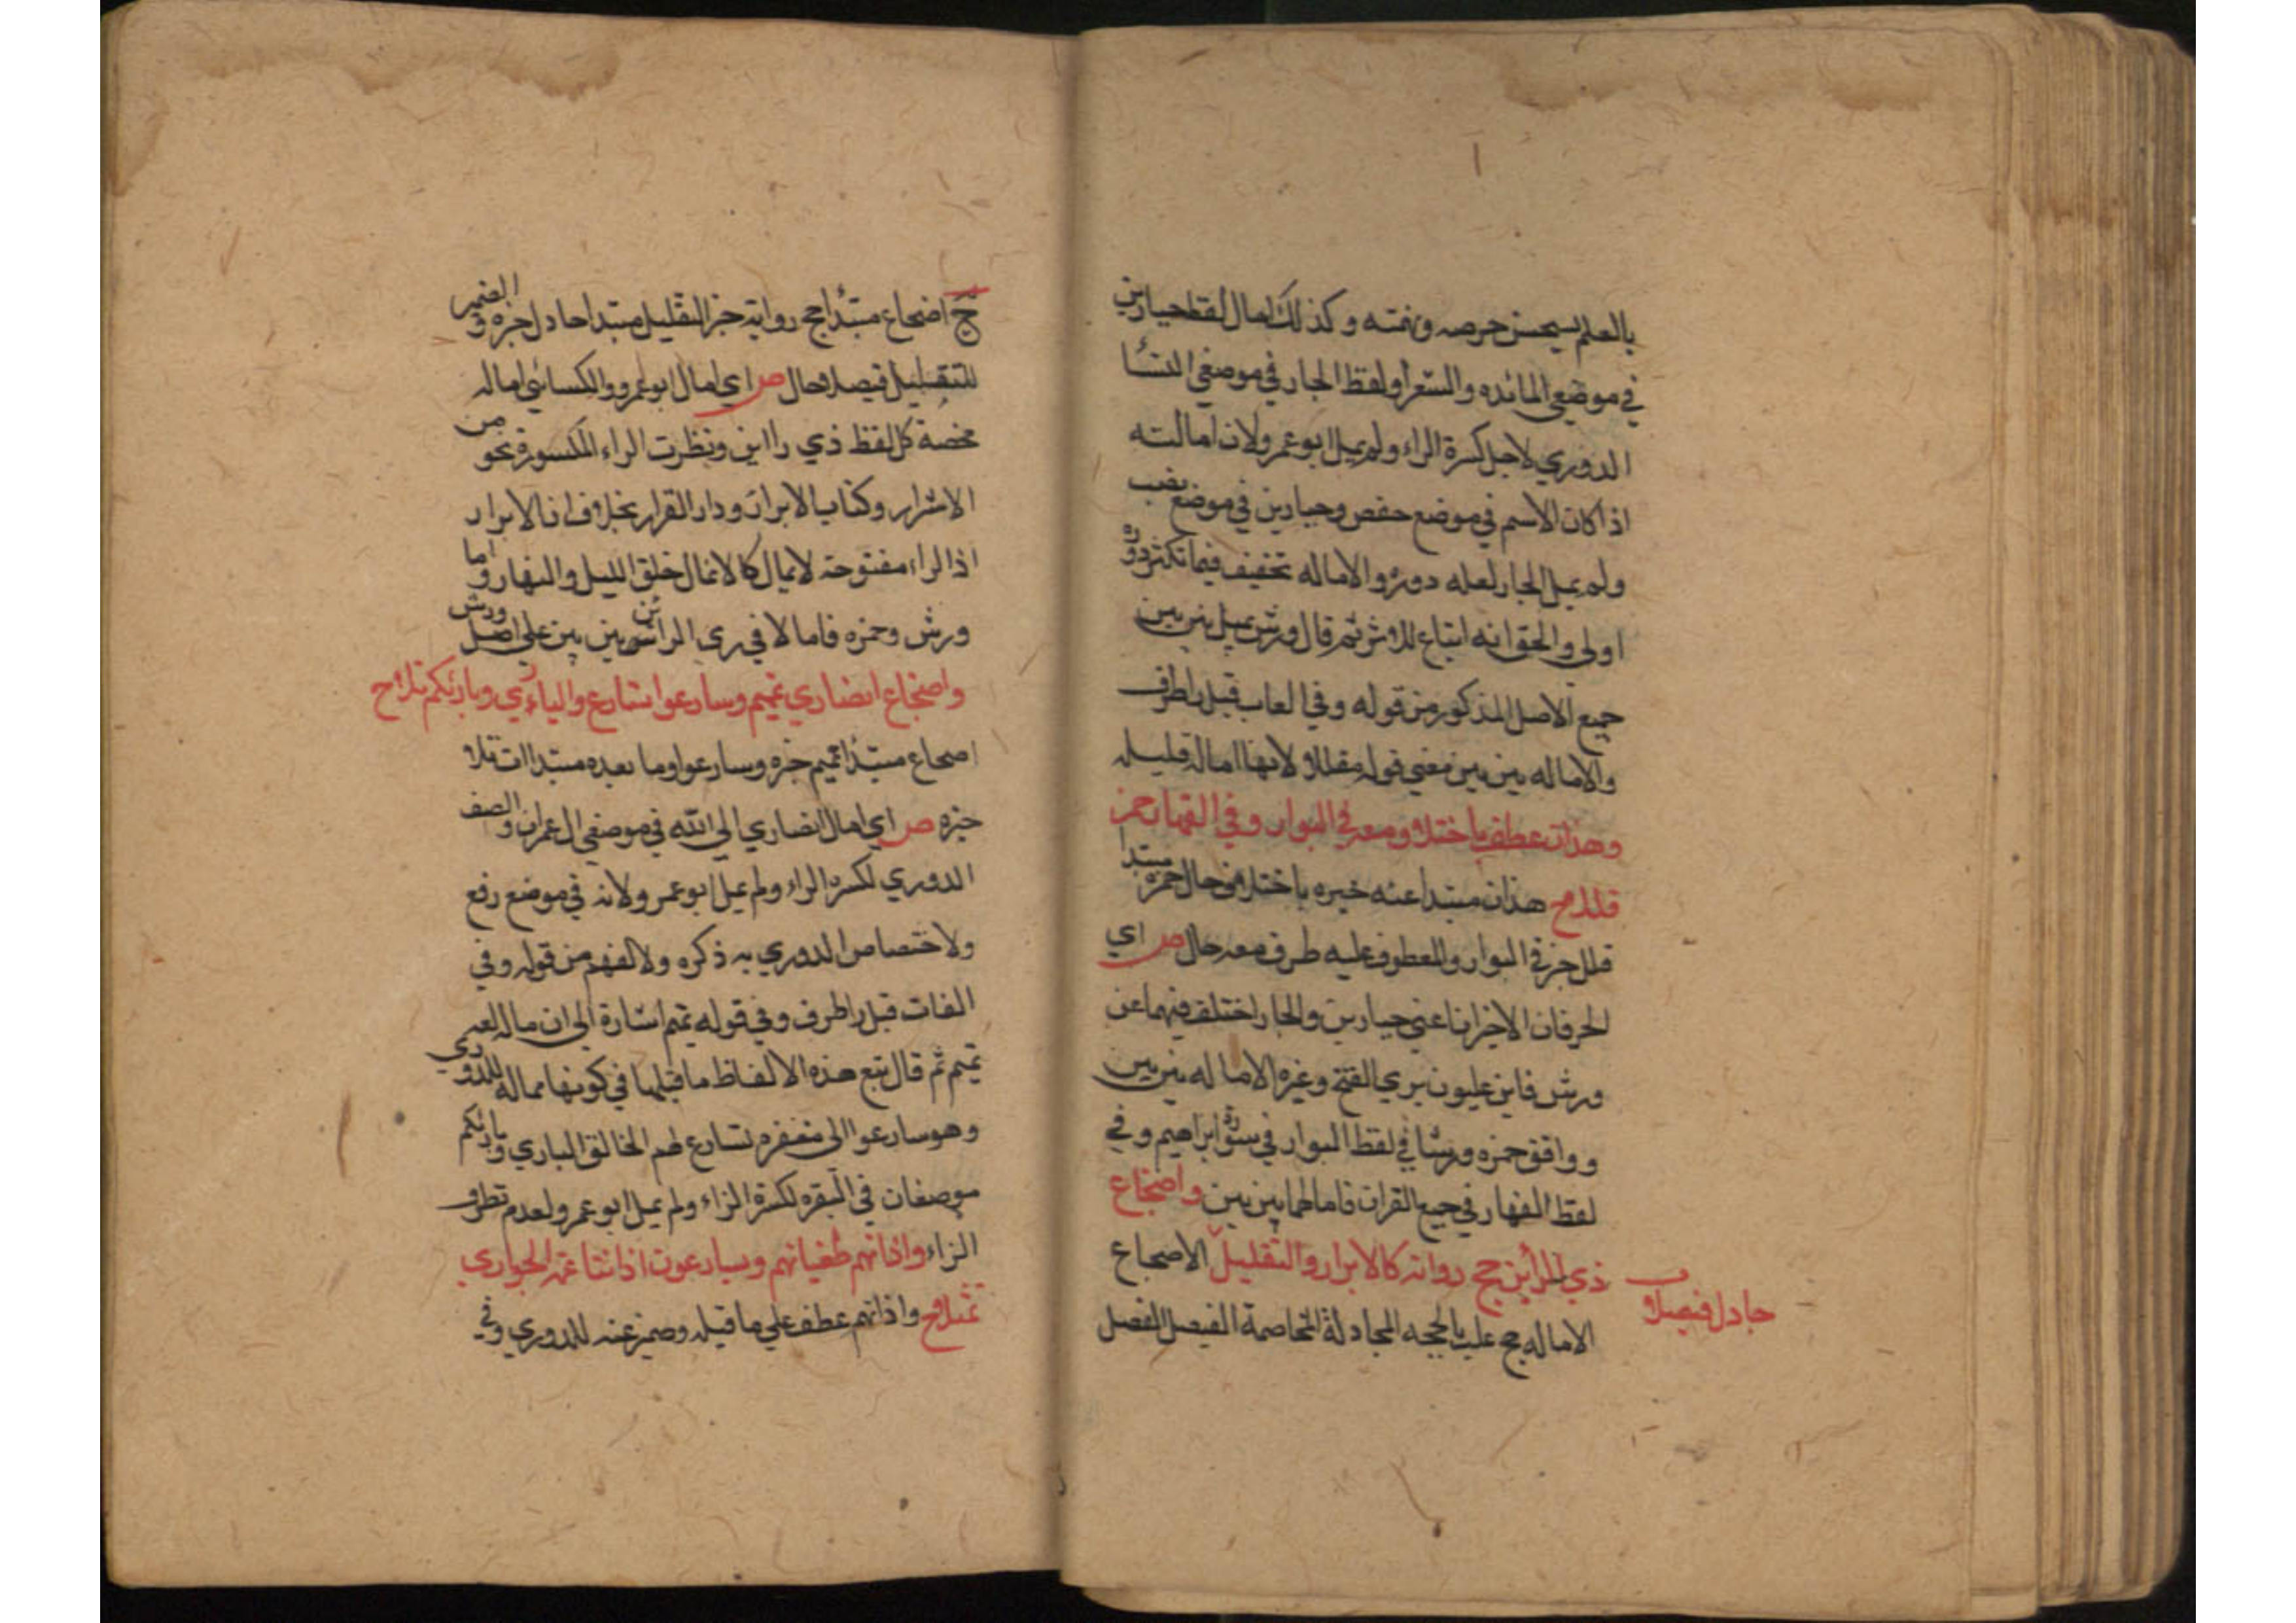 بالعلم يسحسن حرصه ونفته وكذلك امال لفظ جبارين
في موضعي المائده والشعرا ولفظ الجار في موضعي النسا
الدوري لاجل كسرة الراء ولم يمل ابو عمرو لان امالته
اذا كان الاسم في موضع خفض وجبارين في موضع نصب
ولم يمل الجار لعله دوره والاماله تخفيف فيما تكثر دوره
اولي والحق انه اتباع للاثر ثم قال ورش يميل بين بين
جميع الاصل المذكور من قوله وفي الفات قبل را طرف
والاماله بين بين معني قوله مقللا لانها امالة قليله
وهذان عنه باختلاف ومعه في البوار وفي القهار حمزة
قللا ح هذان مبتدا عنه خبره باختلاف حال حمزة مبتدا
قلل خبر في البوار والمعطوف عليه ظرف معه حال ص اي
الحرفان الاخيران اعني جبارين والجار اختلف فيهما عن
ورش فابن غلبون يري الفتح وغيره الاماله بين بين
ووافق حمزه ورشا في لفظ البوار في سورة ابراهيم وفي
لفظ القهار في جميع القران فامالهما بين بين واضجاع
ذي الرائين حج رواته كالابرار والتقليل الاضجاع
جادل فيصلا
الاماله حج غلب بالحجه المجادلة المخاصمة الفيصل الفصل
ح اضجاع مبتدا حج رواته خبر التقليل مبتدا جادل خبره والضمير
للتقليل فيصلا حال ص اي امال ابو عمرو والكسائي امالة
محضة كل لفظ ذي رااين ونظرت الراء المكسورة نحو من
الاشرار وكتاب الابرار ودار القرار بخلاف ان الابرار
اذ الراء مفتوحة لا يمال كما لا تمال خلق الليل والنهار واما
ورش وحمزه فامالا في ري الرائين بين بين علي اصل ورش
واضجاع انصاري تميم وسارعوا نسارع والباري وبارئكم تلا ح
اضجاع مبتدا تميم خبره وسارعوا وما بعده مبتدا ات تلا
خبره ص اي امال انصاري الي الله في موضعي ال عمران والصف
الدوري لكسرة الراء ولم يمل ابو عمرو لانه في موضع رفع
ولاختصاص الدوري به ذكره ولا لفهم من قوله وفي
الفات قبل را طرف وفي قوله تميم اشارة الي ان ماله لغه
تميم ثم قال تبع هذه الالفاظ ما قبلها في كونها مماله للدوري
وهو سارعوا الى مغفره نسارع لهم الخالق الباري وبارئكم
موضعان في البقره لكسرة الراء ولم يمل ابو عمرو لعدم تطرف
الراء واذانهم طغيانهم ويسارعون اذاننا عنه الجواري
تمثلا ح واذانهم عطف علي ما قبله وضمير عنه للدوري وفي